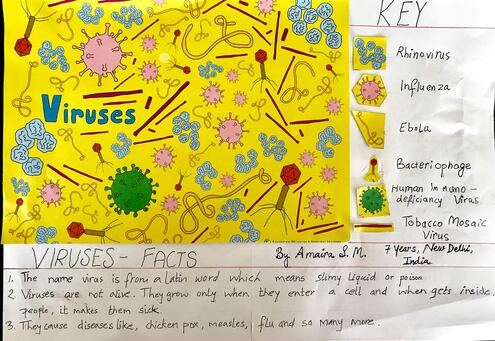 Viruses
KEY
Rhinovirus
Influenza
Ebola
Bacteriophage
Human Immuno-
deficiancy Virus
Tobacco Mosaic
Virus
VIRUSES - FACTS
By Amaira S. M.
7 years, New Delhi,
India
1. The name virus is from a latin word which means slimy liquid or poison.
2 Viruses are not alive. They grow only when they enter a cell and when gets inside
people, it makes them sick.
3. They cause diseases like, chicken pox, measles, flu and so many more.